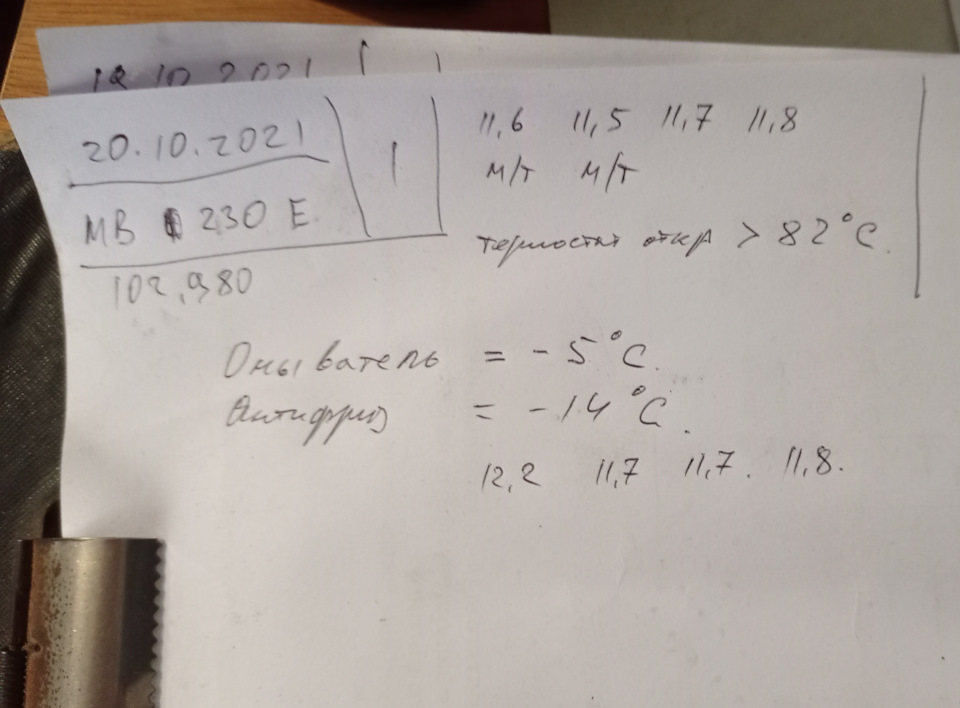 18.10.2021
20.10.2021
1
МВ 230 Е.
102,980
11,6 11,5 11,7 11,8
м/т м/т
термостат откр > 82°С.
Омыватель = -5°С.
Антифриз = -14°С.
12,2 11,7 11,7. 11,8.